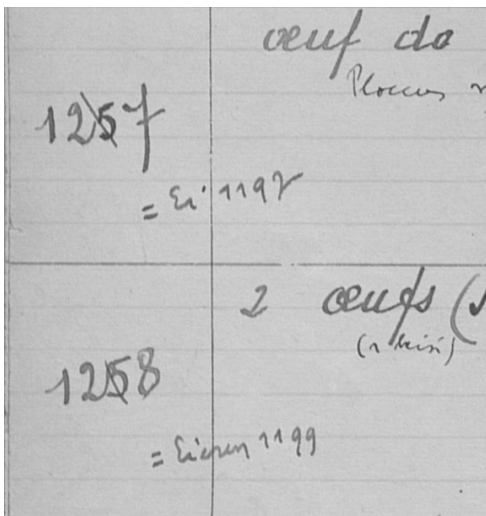 œuf de
Ploceus
1257
= Ei 1197
2 œufs (
(1 brisé)
1258
= Eieren 1199